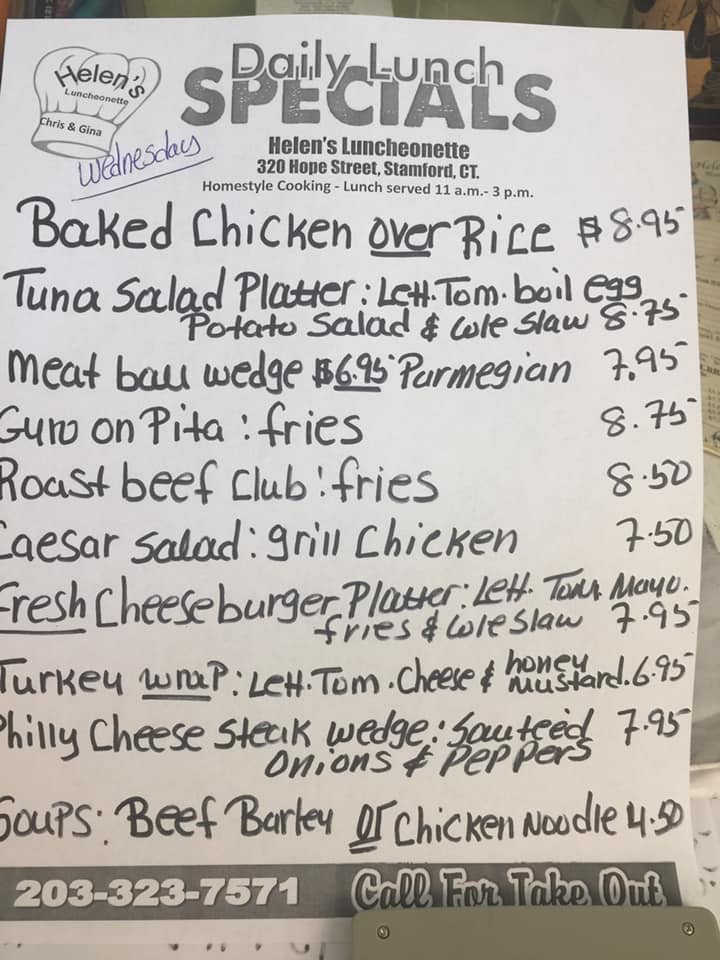 Helen's
Luncheonette
Chris & Gina
Daily Lunch
SPECIALS
Wednesdays
Helen's Luncheonette
320 Hope Street, Stamford, CT.
Homestyle Cooking - Lunch served 11 a.m.- 3 p.m.
Baked Chicken over Rice $8.95
Tuna Salad Platter: Lett. Tom. boil egg
Potato Salad & Cole Slaw 8.75
Meat ball wedge $6.95 Parmegian 7.95
Gyro on Pita: fries 8.75
Roast beef Club: fries 8.50
Caesar Salad: grill Chicken 7.50
Fresh Cheeseburger Platter: Lett. Tom. Mayo.
fries & Cole Slaw 7.95
Turkey wrap: Lett. Tom. Cheese & honey mustard. 6.95
Philly Cheese Steak wedge: Sauteed 7.95
Onions & Peppers
Soups: Beef Barley or Chicken Noodle 4.50
203-323-7571 Call For Take Out